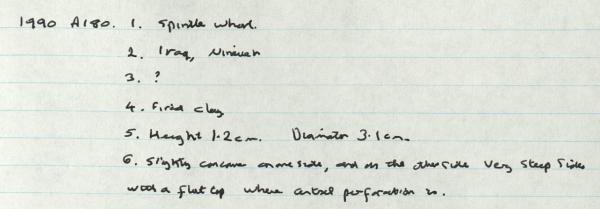 1990 A180. 1. Spindle whorl.
2. Iraq, Nineveh
3. ?
4. Fired clay
5. Height 1.2cm. Diameter 3.1cm.
6. Slightly concave on one side, and on the other side very steep sides
with a flat top where central perforation is.